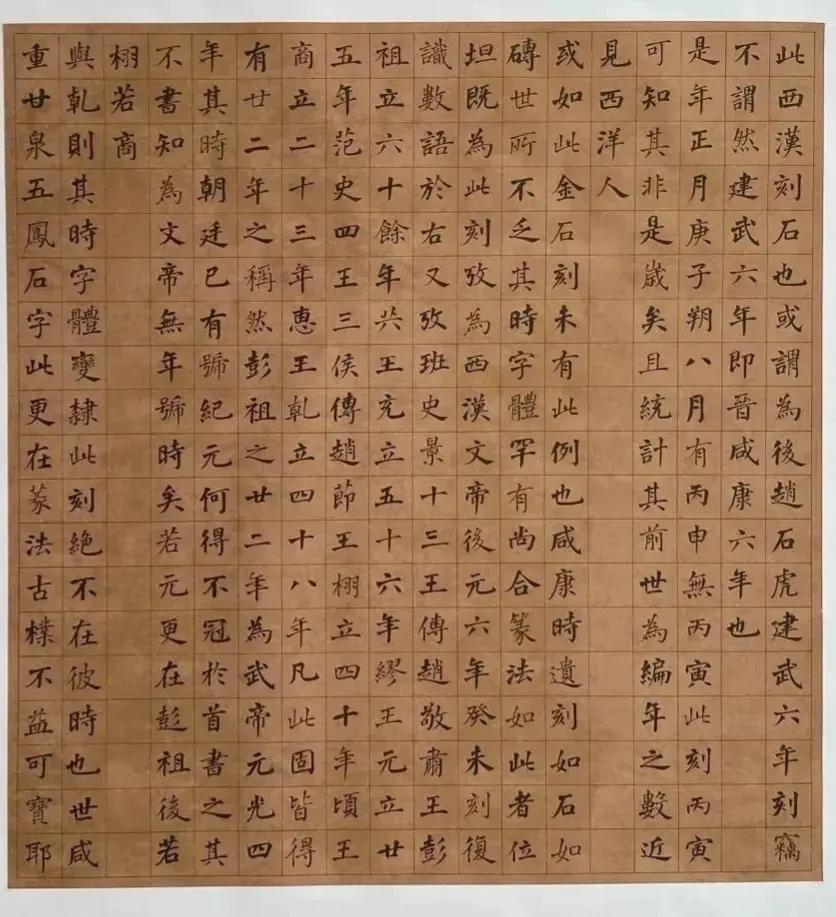 此西漢刻石也或謂為後趙石虎建武六年刻竊
不謂然建武六年即晉咸康六年也
是年正月庚子朔八月有丙申無丙寅此刻丙寅
可知其非是歲矣且統計其前世為編年之數近
見西洋人
或如此金石刻未有此例也咸康時遺刻如石如
磚世所不乏其時字體罕有尚合篆法如此者位
坦既為此刻攷為西漢文帝後元六年癸未刻復
識數語於右又攷班史景十三王傳趙敬肅王彭
祖立六十餘年共王充立五十六年繆王元立廿
五年范史四王三侯傳趙節王栩立四十年頃王
商立二十三年惠王乾立四十八年凡此固皆得
有廿二年之稱然彭祖之廿二年為武帝元光四
年其時朝廷已有號紀元何得不冠於首書之其
不書知為文帝無年號時矣若元更在彭祖後若
栩若商
與乾則其時字體變隸此刻絕不在彼時也世咸
重甘泉五鳳石字此更在篆法古樸不益可寶耶